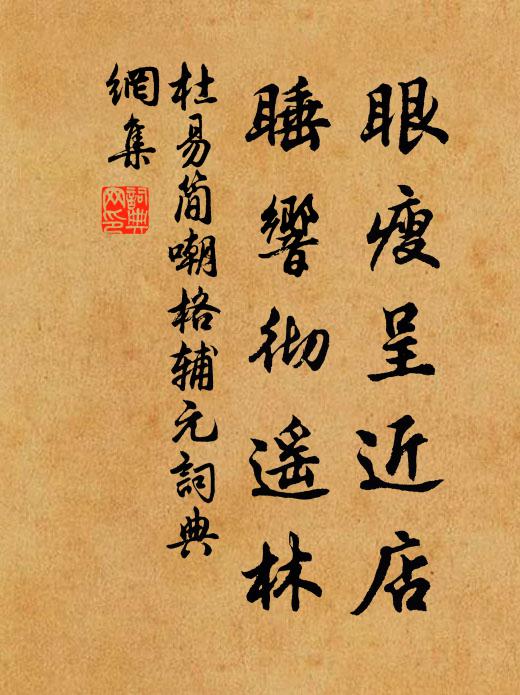 眼瘦呈近店
睡響彻遥林
杜易简嘲格辅元詞典
網集
詞典
网印